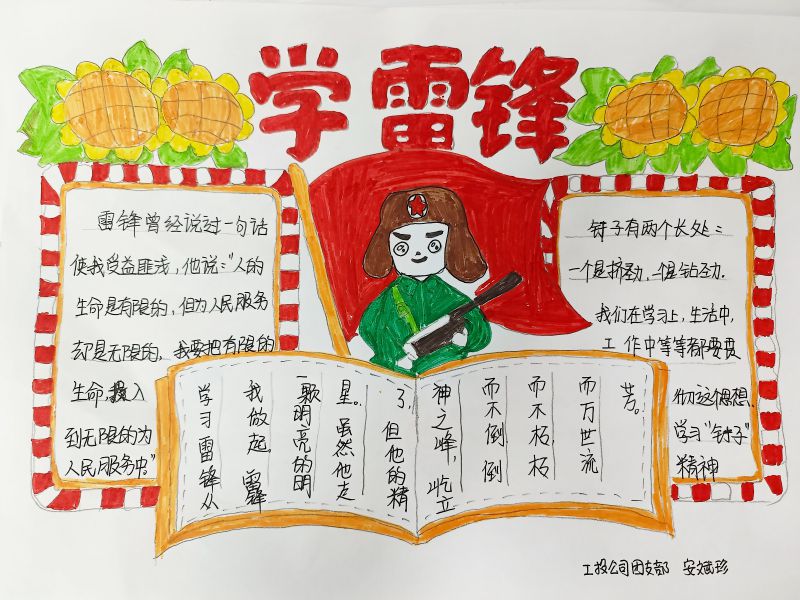 学雷锋
雷锋曾经说过一句话
使我受益匪浅，他说："人的
生命是有限的，但为人民服务
却是无限的，我要把有限的
生命，投入
到无限的为
人民服务中。"
钉子有两个长处：
一个是挤劲，一个是钻劲.
我们在学习上，生活中，
工作中等等都要贯
彻这个思想.
学习"钉子"
精神
学习雷锋从
我做起，雷锋
一颗明亮的明
星。虽然他走
了，但他的精
神之峰，屹立
而不倒，倒
而不朽，朽
而万世流
芳。
工投公司团支部 安斌珍